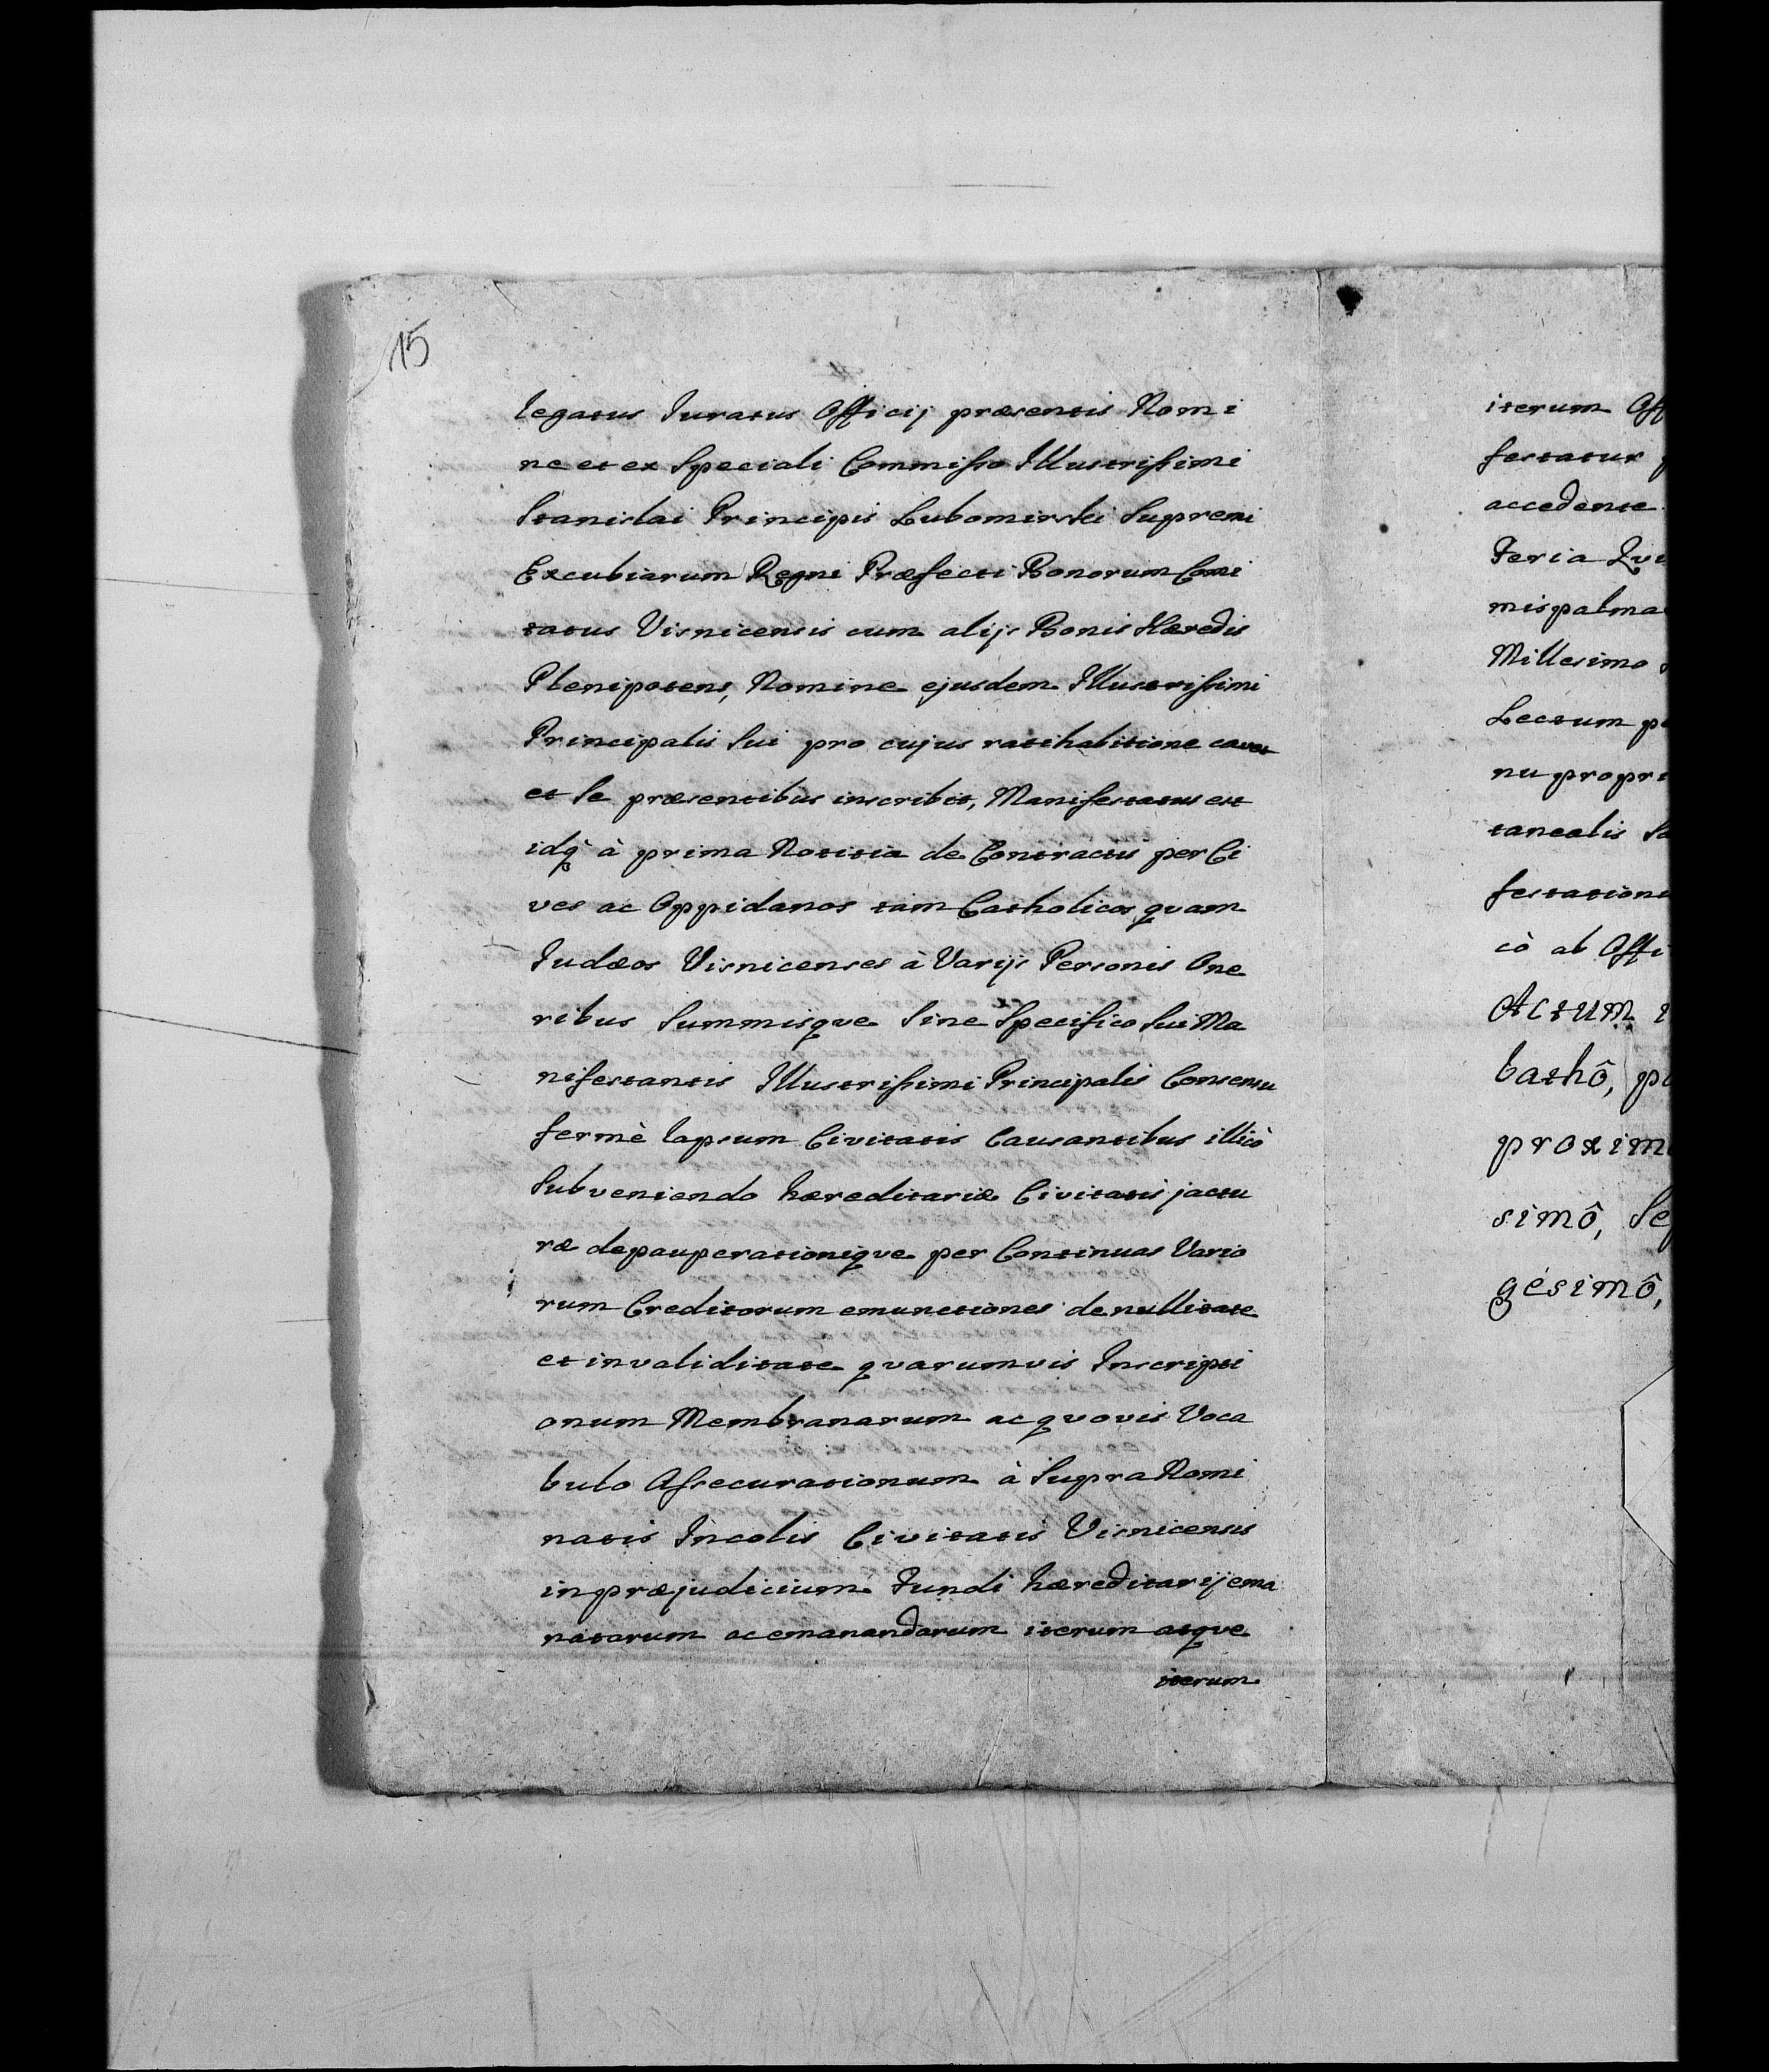 15
legatus Juratus Officij præsentis Nomi
ne et ex Speciali Commisso Illustrissimi
Stanislai Principis Lubomirski Supremi
Excubiarum Regni Præfecti Bonorum Comi
tatus Visnicensis cum alijs Bonis Hæredis
Plenipotens, Nomine ejusdem Illustrissimi
Principalis Sui pro cujus ratihabitione cavet
et Se præsentibus inscribit, Manifestatus est
idq̃ à prima Notitia de Contractis per Ci
ves ac Oppidanos tam Catholicos quam
Judæos Visnicenses à Varijs Personis One
ribus Summisque Sine Specifico Sui Ma
nifestantis Illustrissimi Principalis Consensu
fermè lapsum Civitatis Causantibus illicò
Subveniendo hæreditariæ Civitatis jactu
ræ depauperationique per Continuas Vario
rum Creditorum emunctiones de nullitate
et invaliditate quarumvis Inscripti
onum Membranarum ac quovis Voca
bulo Assecurationum à Supra Nomi
natis Incolis Civitatis Visnicensis
in præjudicium Fundi hæreditarij ema
natarum ac emanandarum iterum atque
iterum
iterum Off
festatur
accedente
Feria Qui
mis palma
Millesimo
Lectum p
nu propri
taneatis Sa
festatione
cò ab Offi
Actum
bathô, p
proxim
simô, Sep
gésimô,